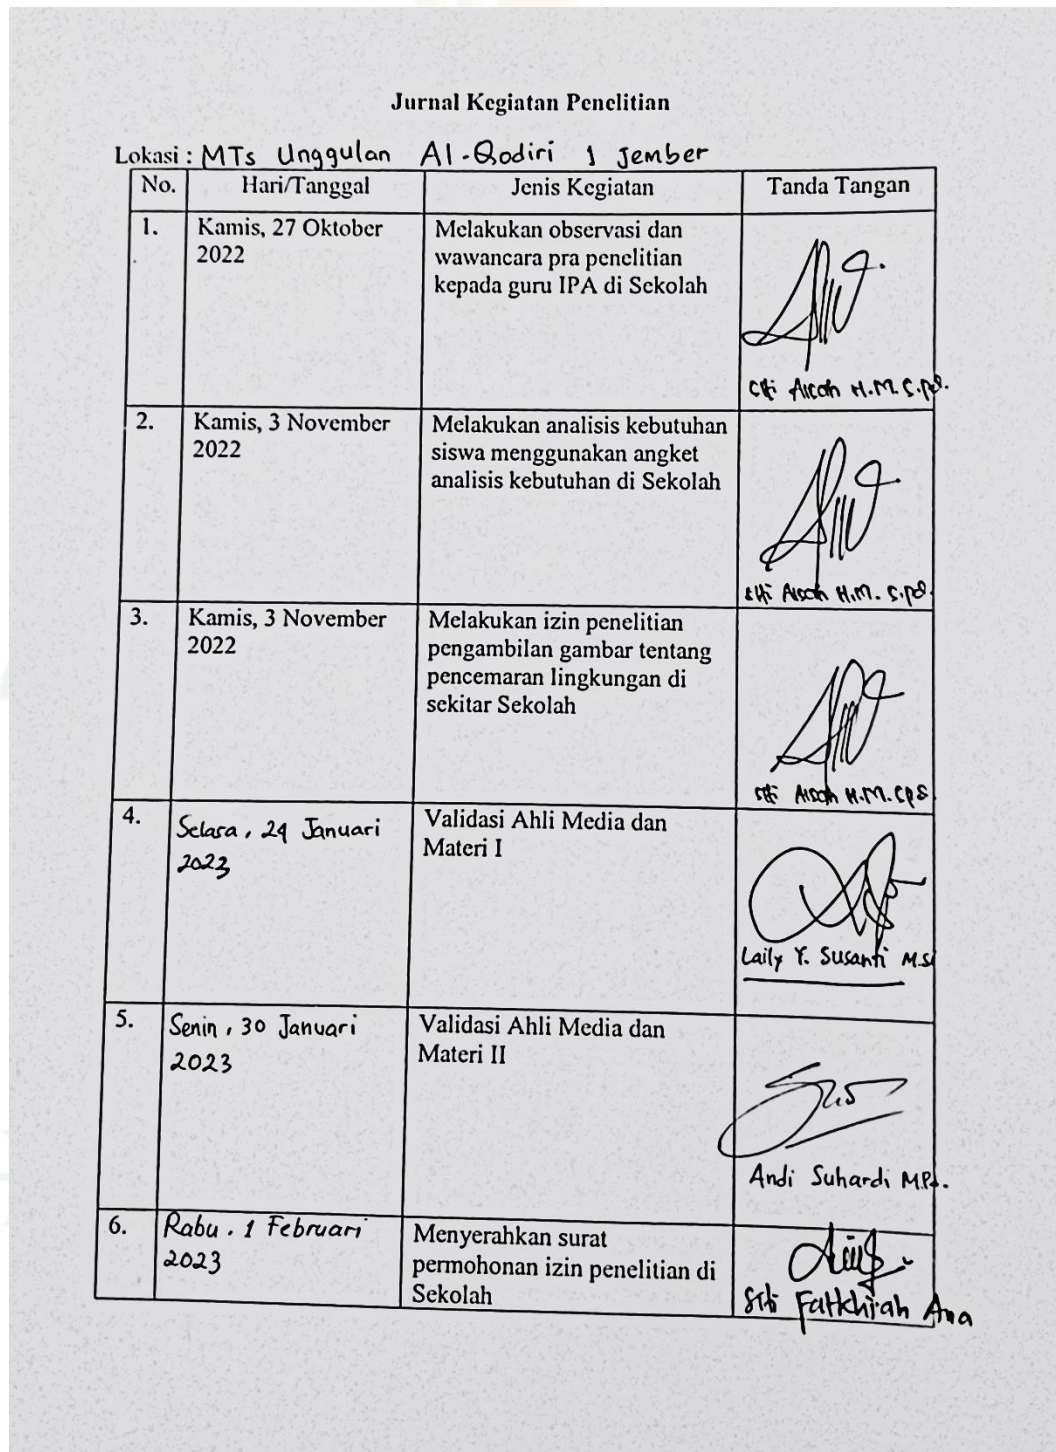 Jurnal Kegiatan Penelitian
Lokasi : MTs Unggulan Al-Qodiri 1 Jember
No. Hari/Tanggal Jenis Kegiatan Tanda Tangan
1. Kamis, 27 Oktober Melakukan observasi dan
2022 wawancara pra penelitian
kepada guru IPA di Sekolah
Siti Aisah H.M. S.Pd.
2. Kamis, 3 November Melakukan analisis kebutuhan
2022 siswa menggunakan angket
analisis kebutuhan di Sekolah
Siti Aisah H.M. S.Pd.
3. Kamis, 3 November Melakukan izin penelitian
2022 pengambilan gambar tentang
pencemaran lingkungan di
sekitar Sekolah
Siti Aisah H.M.
4. Selasa, 24 Januari Validasi Ahli Media dan
2023 Materi I
Laily Y. Susanti M.Si
5. Senin, 30 Januari Validasi Ahli Media dan
2023 Materi II
Andi Suhardi M.Pd.
6. Rabu. 1 Februari Menyerahkan surat
2023 permohonan izin penelitian di
Sekolah
Siti Fatkhirah Ana